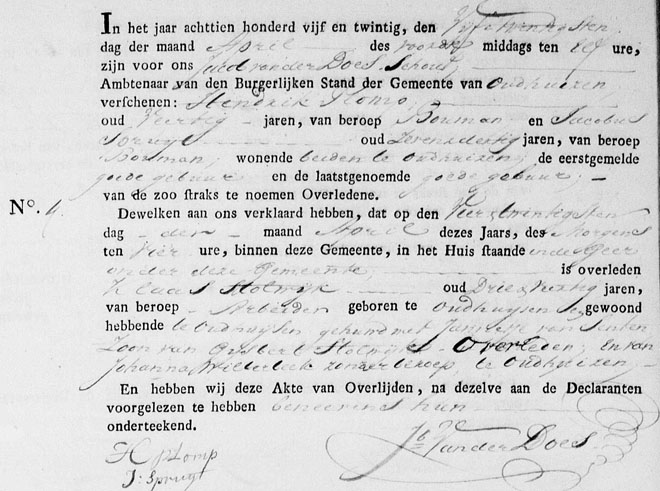 In het jaar achttien honderd vijf en twintig, den Vijf & twintigsten
dag der maand April des voor middags ten elf ure,
zijn voor ons van der Does Schout
Ambtenaar van den Burgerlijken Stand der Gemeente van Oudhuizen
verschenen: Hendrik
oud Veertig jaren, van beroep Bouman en Jacobus
Spruyt oud Zevenendertig jaren, van beroep
Bouman, wonende beiden te Oudhuizen, de eerstgemelde
goede gebuur en de laatstgenoemde goede gebuur
van de zoo straks te noemen Overledene.
No. 4.
Dewelken aan ons verklaard hebben, dat op den Vier & twintigsten
dag der maand April dezes Jaars, des Morgens
ten Vier ure, binnen deze Gemeente, in het Huis staande in de Geer
onder deze Gemeente is overleden
Klaas Stolwijk oud Drie & jaren,
van beroep Arbeider geboren te Oudhuysen gewoond
hebbende te Oudhuysen gehuwd met Jannetje van
Zoon van Gysbert Stolwijk Overleden, en van
Johanna zonder beroep, te Oudhuizen
En hebben wij deze Akte van Overlijden, na dezelve aan de Declaranten
voorgelezen te hebben beneevens hun
onderteekend.
H Plomp
J: Spruyt
van der Does